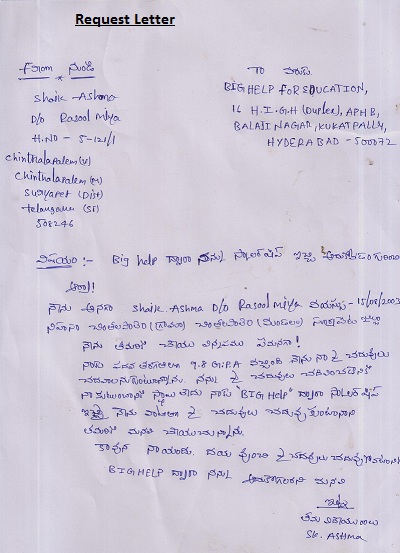 Request Letter
From నుండి
Shaik - Ashma
D/o Rasool Miya
H.NO - 5-121/1
Chinthalapalem (V)
Chinthalapalem (M)
Suryapet (Dist)
Telangana (ST)
508246
To
BIG HELP for EDUCATION,
16 H.I.G.H (Duplex), APHB,
BALAJI NAGAR, KUKATPALLY,
HYDERABAD - 500072
విషయం :- Big help ద్వారా నన్ను స్కాలర్‌షిప్ ఇచ్చి
అయ్యా!
నేను అనగా Shaik. Ashma D/o Rasool Miya వయస్సు - 15/08/2003
చింతలపాలెం (గ్రామం) చింతలపాలెం (మండలం) సూర్యాపేట జిల్లా
నేను తమరికి చేయు విన్నపము ఏమనగా!
నాకు పదవ తరగతిలో 9.8 G.P.A వచ్చింది నేను పై చదువులు
చదవాలనుకుంటున్నాను. నన్ను పై చదువులు
నాకు "BIG HELP" ద్వారా స్కాలర్‌షిప్
నేను పై చదువులు
తమరికి మనవి చేయుచున్నాను.
కావున నాయందు దయ వుంచి పై చదువులు
BIG HELP ద్వారా నన్ను మనవి
ఇట్లు
తమ విధేయురాలు
SK. ASHMA